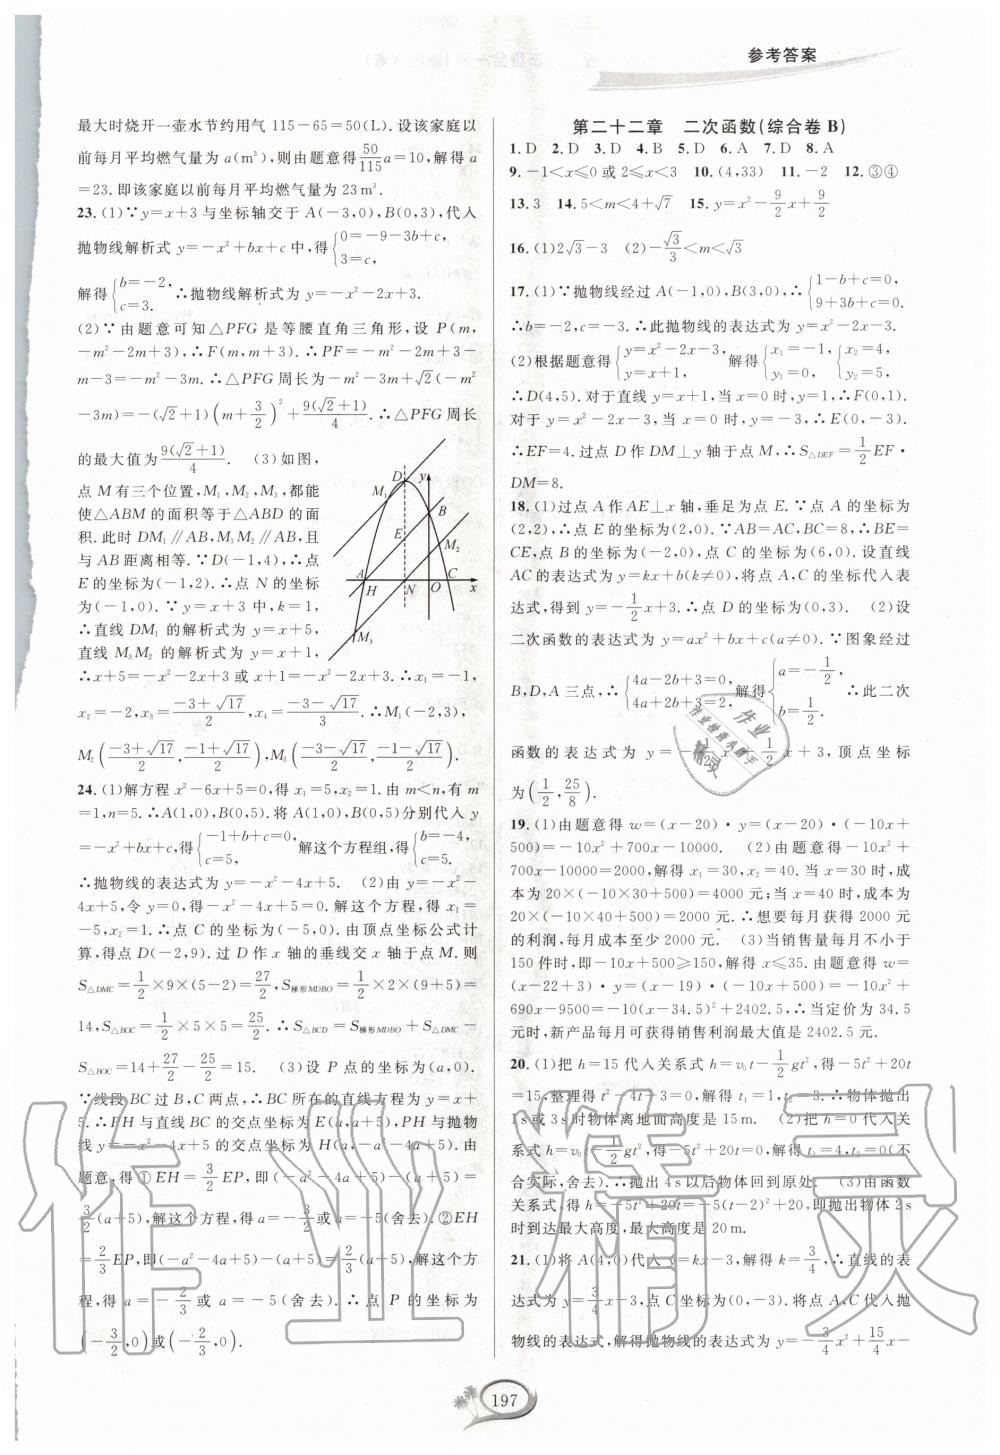 参考答案
最大时烧开一壶水节约用气 115-65=50(L). 设该家庭以
前每月平均燃气量为 a(m³), 则由题意得 50/115 a=10, 解得 a
=23. 即该家庭以前每月平均燃气量为 23 m³.
23. (1)∵y=x+3 与坐标轴交于 A(-3,0), B(0,3), 代入
抛物线解析式 y=-x²+bx+c 中, 得 {0=-9-3b+c, 3=c,
解得 {b=-2, c=3. ∴抛物线解析式为 y=-x²-2x+3.
(2)∵由题意可知△PFG 是等腰直角三角形, 设 P(m,
-m²-2m+3), ∴F(m,m+3). ∴PF=-m²-2m+3-
m-3=-m²-3m. ∴△PFG 周长为-m²-3m+√2(-m²
-3m)=-(√2+1)(m+3/2)²+9(√2+1)/4. ∴△PFG 周长
的最大值为 9(√2+1)/4. (3)如图,
点 M 有三个位置, M₁, M₂, M₃, 都能
使△ABM 的面积等于△ABD 的面
积. 此时 DM₁∥AB, M₃M₂∥AB, 且
与 AB 距离相等. ∵D(-1,4), ∴点
E 的坐标为(-1,2). ∴点 N 的坐标
为(-1,0). ∵y=x+3 中, k=1,
∴直线 DM₁ 的解析式为 y=x+5,
直线 M₃M₂ 的解析式为 y=x+1,
∴x+5=-x²-2x+3 或 x+1=-x²-2x+3. ∴x₁=-1,
x₂=-2, x₃=(-3+√17)/2, x₄=(-3-√17)/3. ∴M₁(-2,3),
M₂((-3+√17)/2, (-1+√17)/2), M₃((-3-√17)/2, (-1-√17)/2).
D y
M₁
B
E M₂
A C
H N O x
M₃
24. (1)解方程 x²-6x+5=0, 得 x₁=5, x₂=1. 由 m<n, 有 m
=1, n=5. ∴A(1,0), B(0,5). 将 A(1,0), B(0,5)分别代入 y
=-x²+bx+c, 得 {-1+b+c=0, c=5. 解这个方程组, 得 {b=-4, c=5.
∴抛物线的表达式为 y=-x²-4x+5. (2)由 y=-x²-
4x+5, 令 y=0, 得-x²-4x+5=0. 解这个方程, 得 x₁=
-5, x₂=1. ∴点 C 的坐标为(-5,0). 由顶点坐标公式计
算, 得点 D(-2,9). 过 D 作 x 轴的垂线交 x 轴于点 M. 则
S△DMC=1/2×9×(5-2)=27/2, S梯形MDBO=1/2×2×(9+5)=
14, S△BOC=1/2×5×5=25/2. ∴S△BCD=S梯形MDBO+S△DMC-
S△BOC=14+27/2-25/2=15. (3)设 P 点的坐标为(a,0).
∵线段 BC 过 B, C 两点, ∴BC 所在的直线方程为 y=x+
5. ∴PH 与直线 BC 的交点坐标为 E(a,a+5), PH 与抛物
线 y=-x²-4x+5 的交点坐标为 H(a,-a²-4a+5). 由
题意, 得①EH=3/2EP, 即(-a²-4a+5)-(a+5)=
3/2(a+5), 解这个方程, 得 a=-3/2 或 a=-5(舍去). ②EH
=2/3EP, 即(-a²-4a+5)-(a+5)=2/3(a+5), 解这个方
程, 得 a=-2/3 或 a=-5(舍去). ∴点 P 的坐标为
(-3/2,0)或(-2/3,0).
第二十二章 二次函数(综合卷 B)
1. D 2. D 3. D 4. B 5. D 6. A 7. D 8. A
9. -1<x≤0 或 2≤x<3 10. (4,33) 11. -2 12. ③④
13. 3 14. 5<m<4+√7 15. y=x²-9/2x+9/2
16. (1)2√3-3 (2)-√3/3<m<√3
17. (1)∵抛物线经过 A(-1,0), B(3,0), ∴{1-b+c=0, 9+3b+c=0.
∴b=-2, c=-3. ∴此抛物线的表达式为 y=x²-2x-3.
(2)根据题意得{y=x²-2x-3, y=x+1, 解得{x₁=-1, y₁=0, {x₂=4, y₂=5,
∴D(4,5). 对于直线 y=x+1, 当 x=0 时, y=1, ∴F(0,1).
对于 y=x²-2x-3, 当 x=0 时, y=-3, ∴E(0,-3).
∴EF=4. 过点 D 作 DM⊥y 轴于点 M, ∴S△DEF=1/2EF·
DM=8.
18. (1)过点 A 作 AE⊥x 轴, 垂足为点 E. ∵点 A 的坐标为
(2,2), ∴点 E 的坐标为(2,0). ∵AB=AC, BC=8, ∴BE=
CE, 点 B 的坐标为(-2,0), 点 C 的坐标为(6,0). 设直线
AC 的表达式为 y=kx+b(k≠0), 将点 A, C 的坐标代入表
达式, 得到 y=-1/2x+3. ∴点 D 的坐标为(0,3). (2)设
二次函数的表达式为 y=ax²+bx+c(a≠0). ∵图象经过
B, D, A 三点, ∴{4a-2b+3=0, 4a+2b+3=2. 解得{a=-1/2, b=1/2. ∴此二次
函数的表达式为 y=-1/2x²+1/2x+3, 顶点坐标
为(1/2, 25/8).
19. (1)由题意得 w=(x-20)·y=(x-20)·(-10x+
500)=-10x²+700x-10000. (2)由题意得-10x²+
700x-10000=2000. 解得 x₁=30, x₂=40. 当 x=30 时, 成
本为 20×(-10×30+500)=4000 元; 当 x=40 时, 成本为
20×(-10×40+500)=2000 元. ∴想要每月获得 2000 元
的利润, 每月成本至少 2000 元. (3)当销售量每月不小于
150 件时, 即-10x+500≥150, 解得 x≤35. 由题意得 w=
(x-22+3)·y=(x-19)·(-10x+500)=-10x²+
690x-9500=-10(x-34.5)²+2402.5, ∴当定价为 34.5
元时, 新产品每月可获得销售利润最大值是 2402.5 元.
20. (1)把 h=15 代入关系式 h=v₀t-1/2gt², 得-5t²+20t
=15, 整理得 t²-4t+3=0, t₁=1, t₂=3. ∴物体抛出
1 s 或 3 s 时物体离地面高度是 15 m. (2)把 h=0 代入关
系式 h=v₀t-1/2gt², 得-5t²+20t=0, 解得 t₁=4, t₂=0(不
合实际, 舍去). ∴抛出 4 s 以后物体回到原处. (3)由函数
关系式, 得 h=-5t²+20t=-5(t-2)²+20, 即抛物体 2 s
时到达最大高度, 最大高度是 20 m.
21. (1)将 A(4,0)代入 y=kx-3, 解得 k=3/4, ∴直线的表
达式为 y=3/4x-3, 点 C 坐标为(0,-3). 将点 A, C 代入抛
物线的表达式, 解得抛物线的表达式为 y=-3/4x²+15/4x-
197
作业精灵